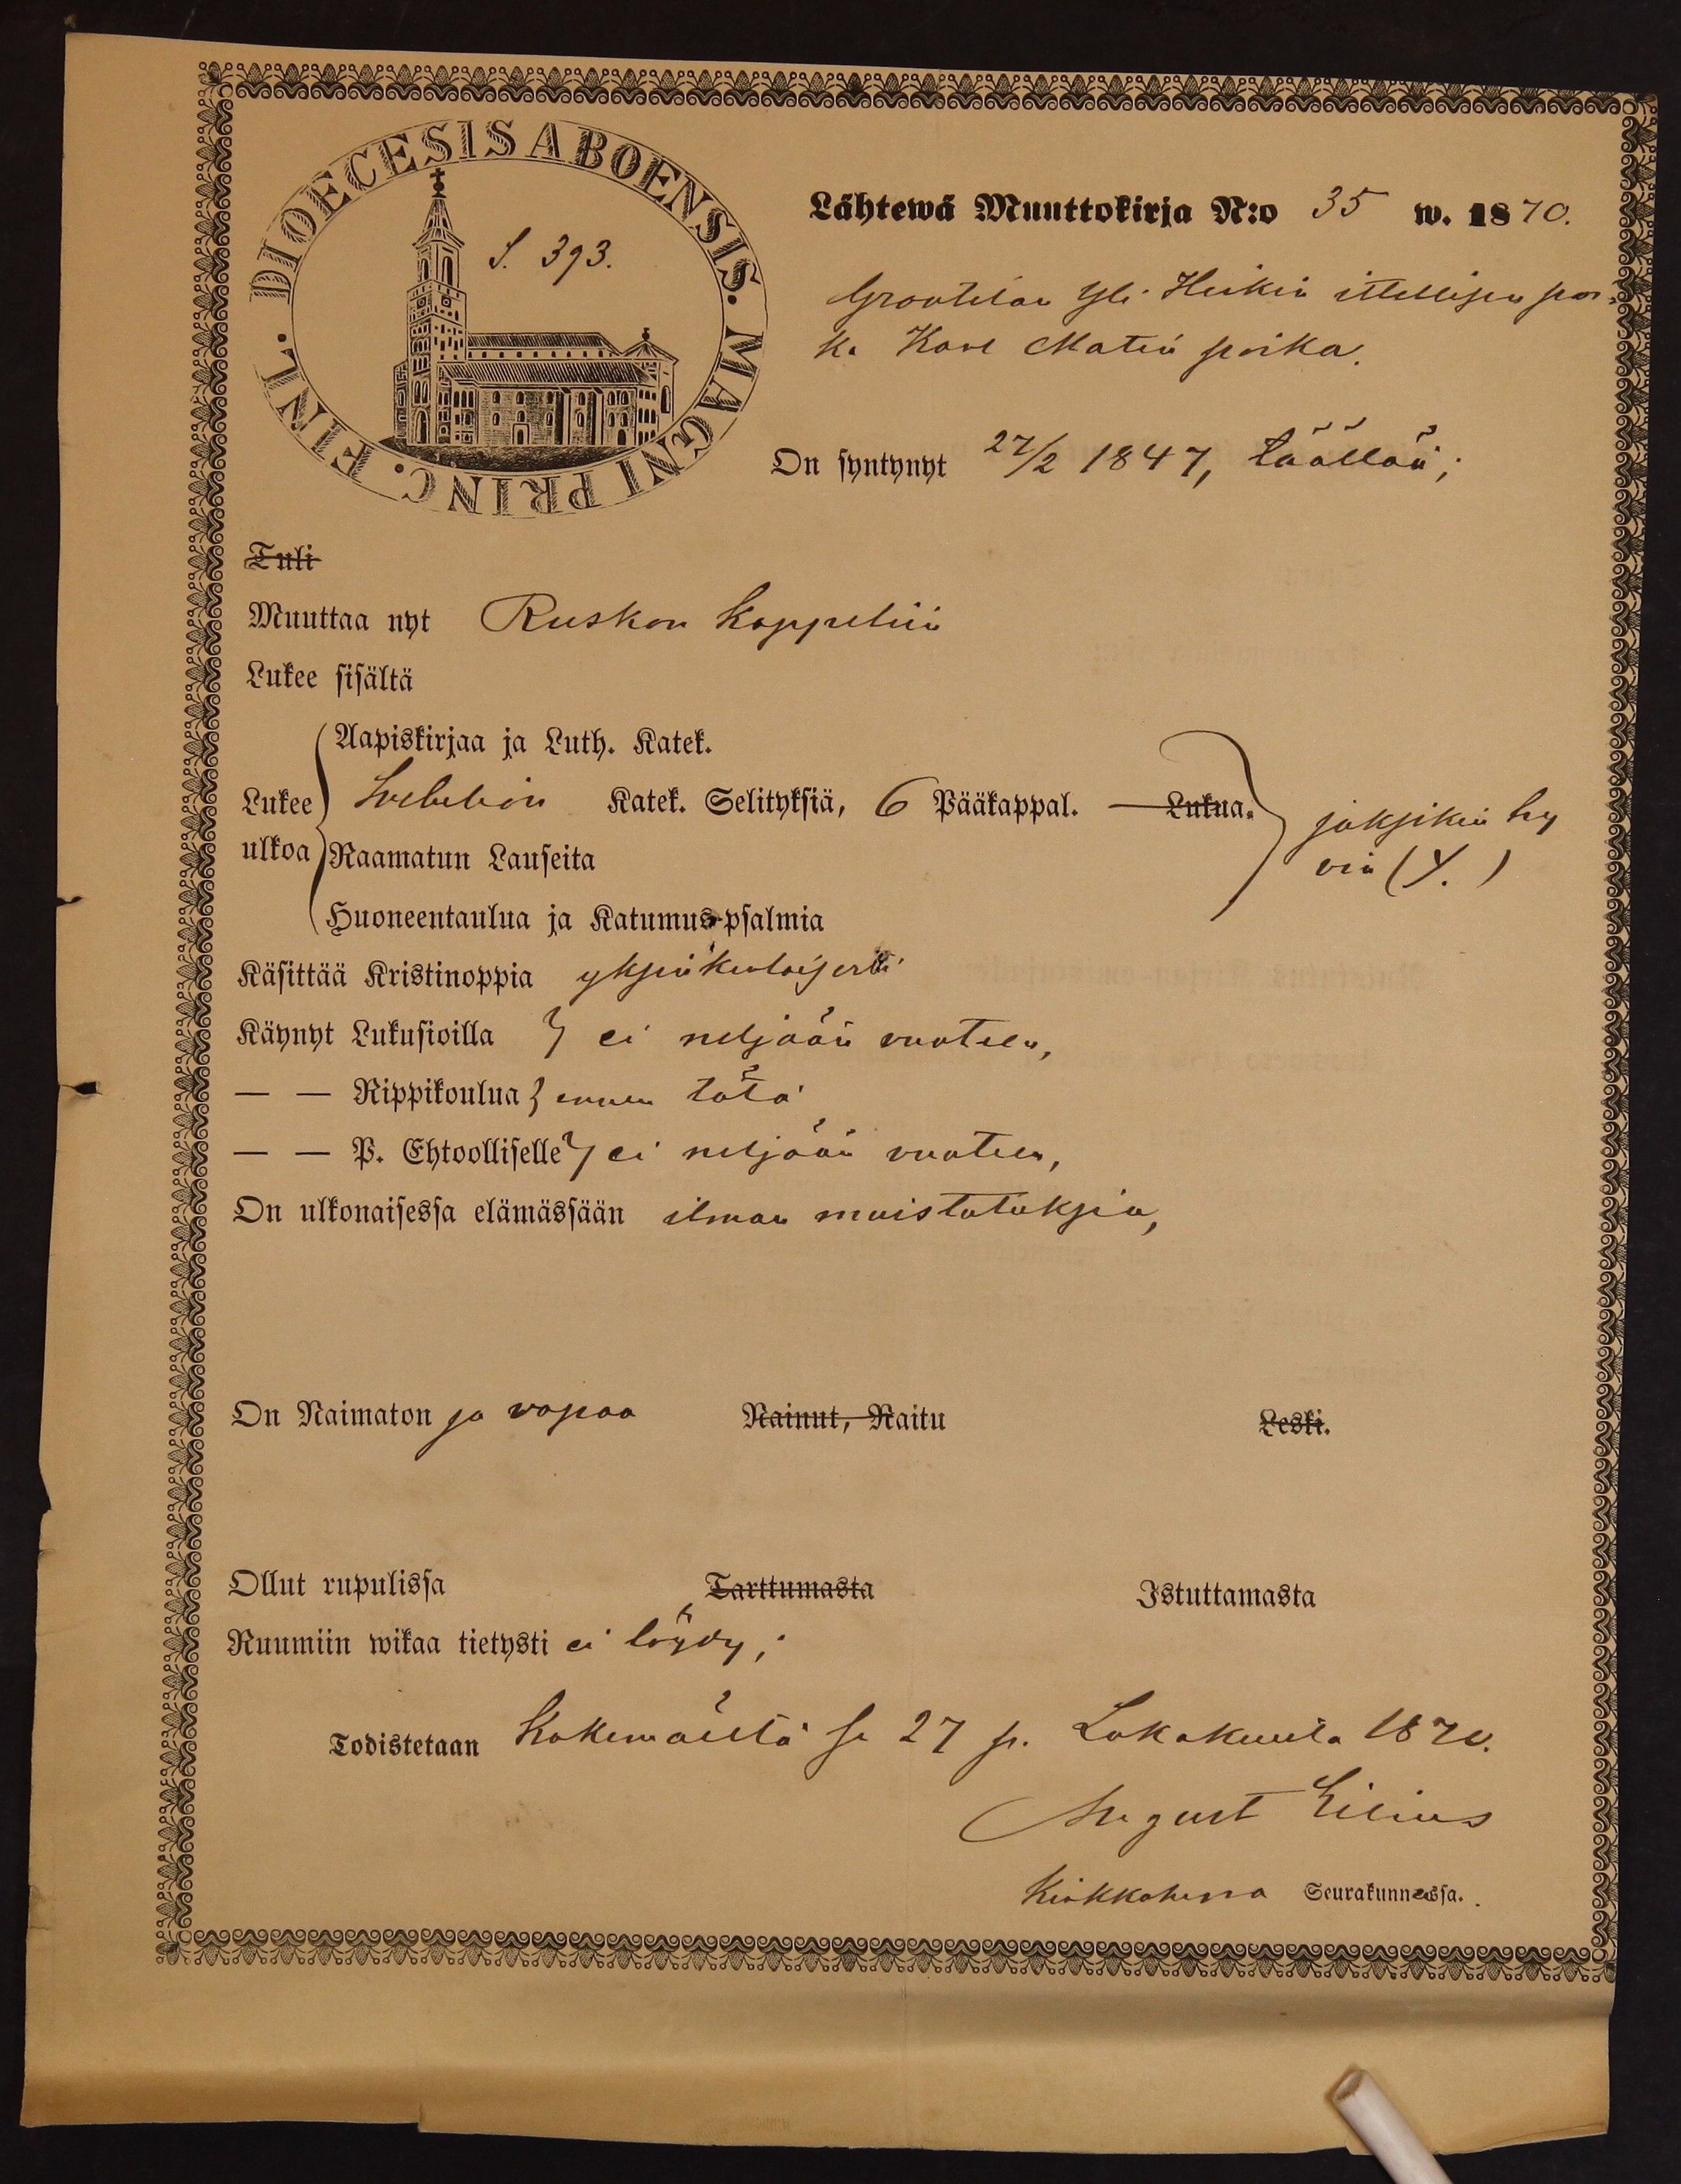 DIOECESIS ABOENSIS. MAGNI PRINC. FINL.
S. 393.
Lähtewä Muuttokirja N:o 35 w. 1870.
Yli Heikin ittellisen poi-
ka Karl Matin poika.
On syntynyt 27/2 1847, täällä;
Tuli
Muuttaa nyt Ruskon kappeliin
Lukee sisältä
Aapiskirjaa ja Luth. Katek.
Lukee Svebelion Katek. Selityksiä, 6 Pääkappal. — Lukua. joksikin hy
ulkoa Raamatun Lauseita vin (Y.)
Huoneentaulua ja Katumus-psalmia
Käsittää Kristinoppia yksinkertaisesti
Käynyt Lukusioilla ei neljään vuoteen,
— — Rippikoulua ennen tätä
— — P. Ehtoolliselle ei neljään vuoteen,
On ulkonaisessa elämässään ilman muistutuksia,
On Naimaton ja vapaa Nainut, Naitu Leski.
Ollut rupulissa Tarttumasta Istuttamasta
Ruumiin wikaa tietysti ei löydy;
Todistetaan Kokemäeltä se 27 p. Lokakuuta 1870.
August
Kirkkoherra Seurakunnassa.